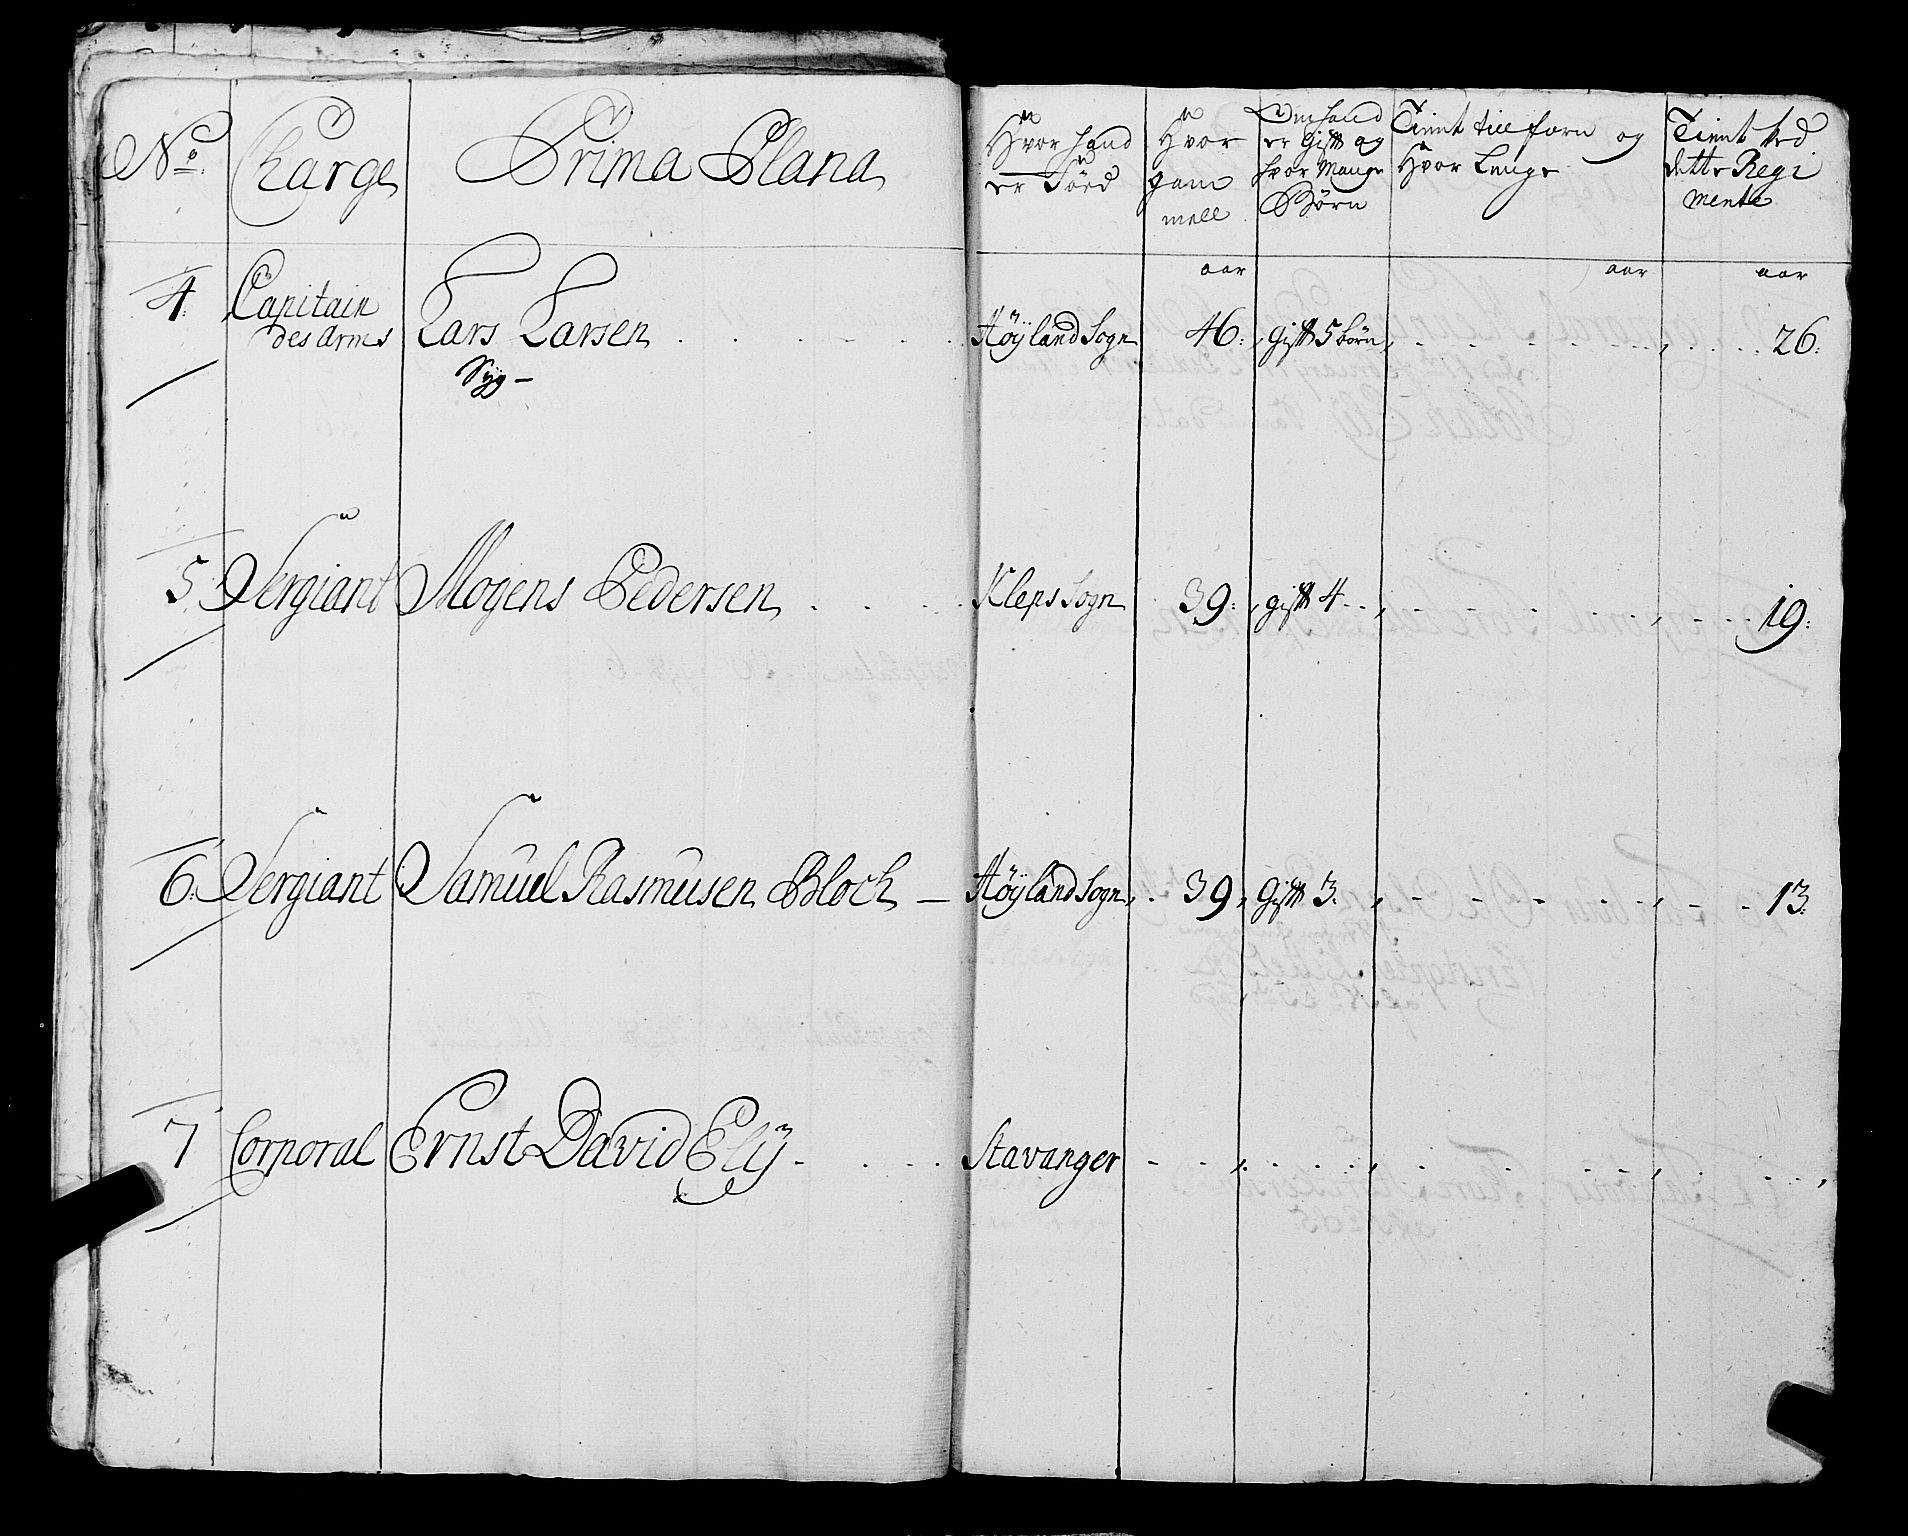 No. Charge Prima Plana Hvor hand er Förd Hvor gammell Om hand er gift og hvor Mange Börn Tient till forn og Hvor Lenge Tient ved dette Regimente
aar aar aar
4. Capitain des Arms Lars Larsen Höÿland Sogn 46. gift 5 börn 26.
Syg -
5. Sergiant Mogens Pedersen Kleps Sogn 39. gift 4 19.
6. Sergiant Samuel Rasmusen Bloch Höÿland Sogn 39. Gift 3. 13.
7 Corporal Ernst David Elÿ Stavanger